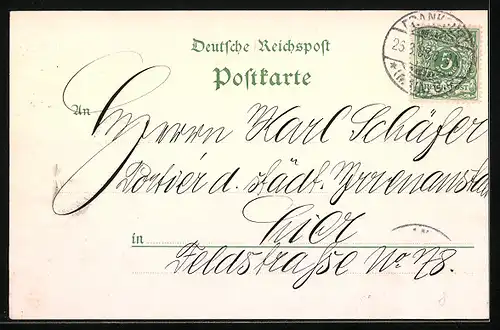 Deutsche Reichspost
Postkarte
An Herrn Karl Schäfer
Portier d. städt. Irrenanstalt
in Hier
Feldstrasse No 78.